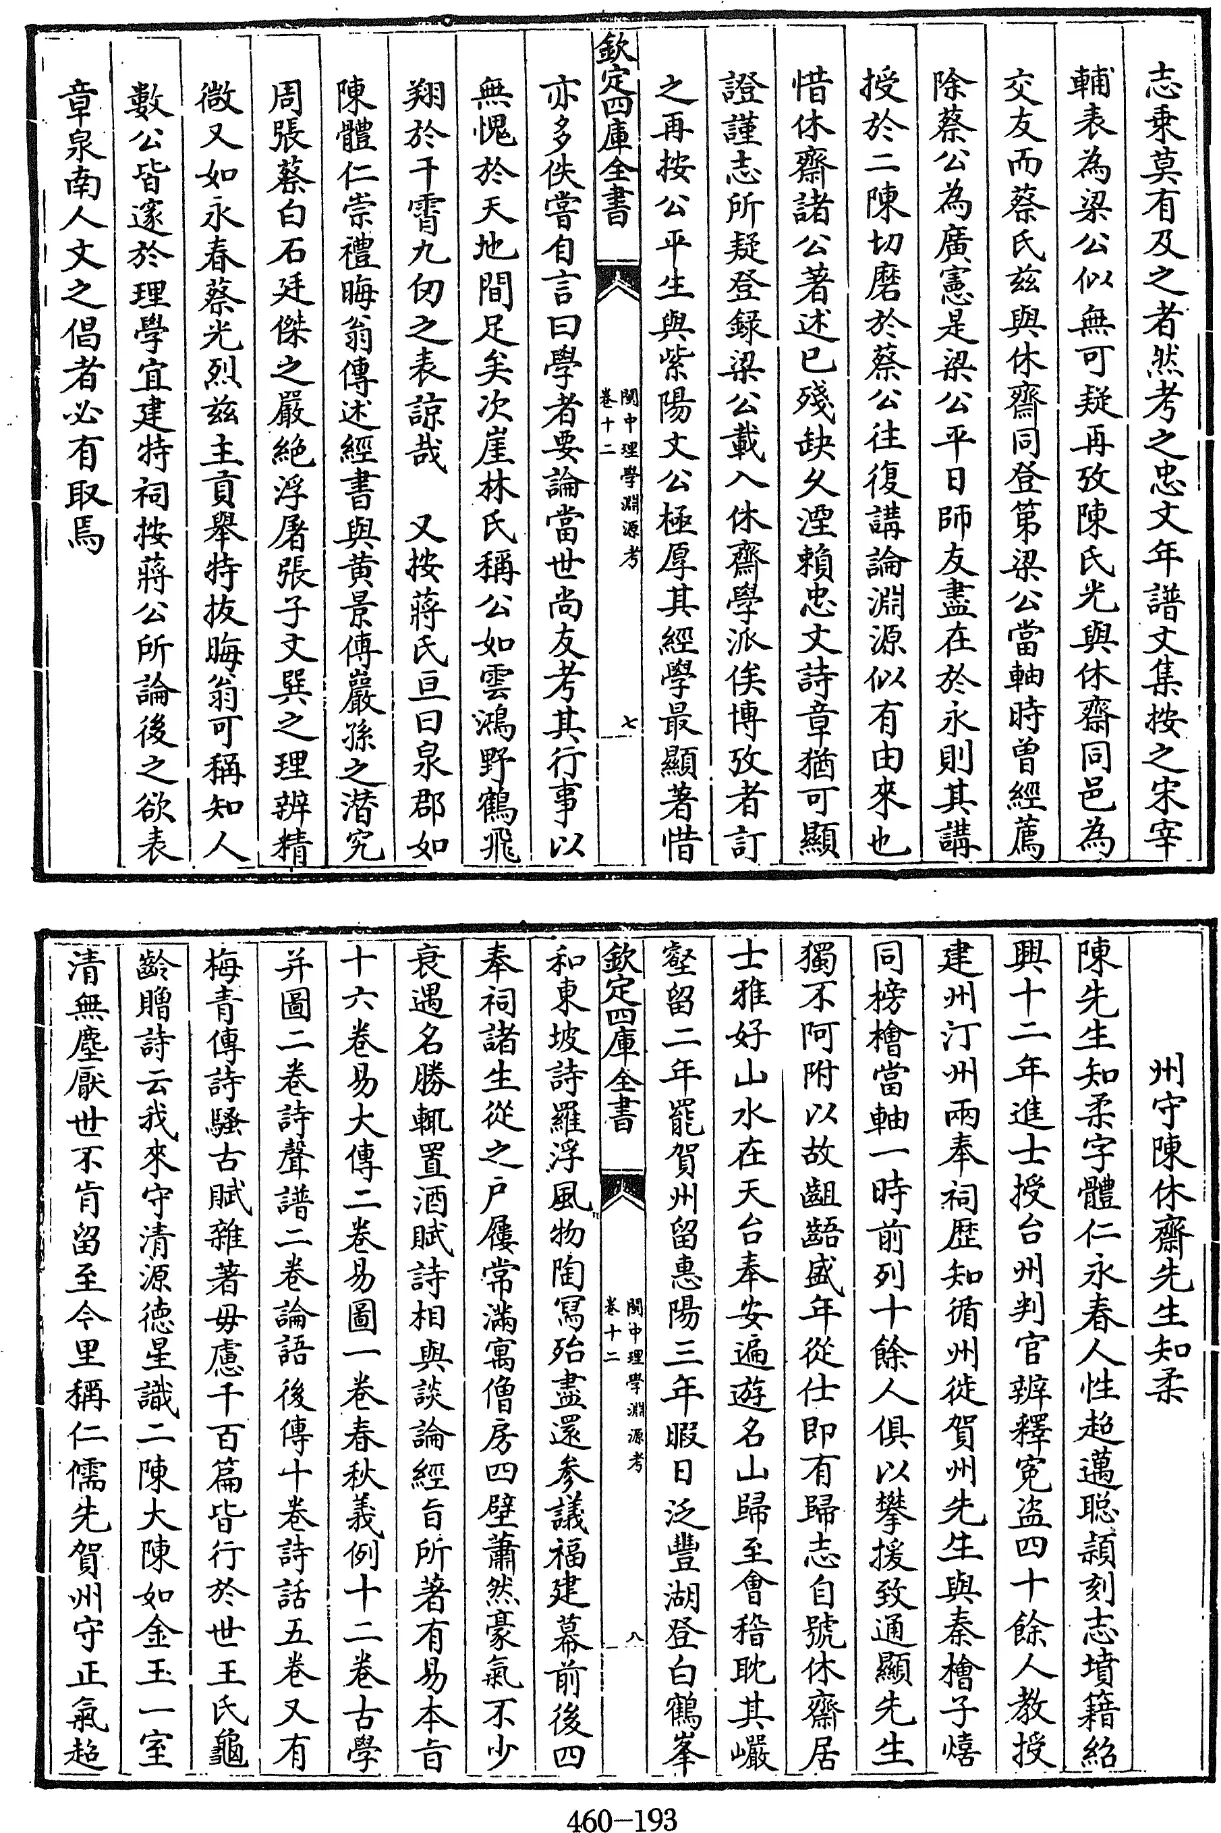 志乘莫有及之者然考之忠文年譜文集按之宋宰
輔表為梁公似無可疑再攷陳氏光與休齋同邑為
交友而蔡氏兹與休齋同登第梁公當軸時曾經薦
除蔡公為廣憲是梁公平日師友盡在於永則其講
授於二陳切磨於蔡公往復講論淵源似有由來也
惜休齋諸公著述已殘缺久湮賴忠文詩章猶可顯
證謹志所疑登録梁公載入休齋學派俟博攷者訂
之再按公平生與紫陽文公極厚其經學最顯著惜
欽定四庫全書
閩中理學淵源考
卷十二
七
亦多佚嘗自言曰學者要論當世尚友考其行事以
無愧於天地間足矣次崖林氏稱公如雲鴻野鶴飛
翔於干霄九仞之表諒哉 又按蔣氏亘曰泉郡如
陳體仁崇禮晦翁傳述經書與黄景傳嚴孫之潜究
周張蔡白石廷傑之嚴絶浮屠張子文巽之理辨精
微又如永春蔡光烈兹主貢舉特抜晦翁可稱知人
數公皆邃於理學宜建特祠按蔣公所論後之欲表
章泉南人文之倡者必有取焉
州守陳休齋先生知柔
陳先生知柔字體仁永春人性超邁聰穎刻志墳籍紹
興十二年進士授台州判官辨釋寃盗四十餘人教授
建州汀州兩奉祠歴知循州徙賀州先生與秦檜子熺
同榜檜當軸一時前列十餘人俱以攀援致通顯先生
獨不阿附以故齟齬盛年從仕即有歸志自號休齋居
士雅好山水在天台奉安遍遊名山歸至會稽耽其巗
壑留二年罷賀州留惠陽三年暇日泛豐湖登白鶴峯
欽定四庫全書
閩中理學淵源考
卷十二
八
和東坡詩羅浮風物陶冩殆盡還參議福建幕前後四
奉祠諸生從之户屨常滿寓僧房四壁蕭然豪氣不少
衰遇名勝輒置酒賦詩相與談論經旨所著有易本旨
十六卷易大傳二卷易圖一卷春秋義例十二卷古學
并圖二卷詩聲譜二卷論語後傳十卷詩話五卷又有
梅青傳詩騷古賦雜著毋慮千百篇皆行於世王氏龜
齡贈詩云我來守清源德星識二陳大陳如金玉一室
清無塵厭世不肯留至今里稱仁儒先賀州守正氣超
460-193